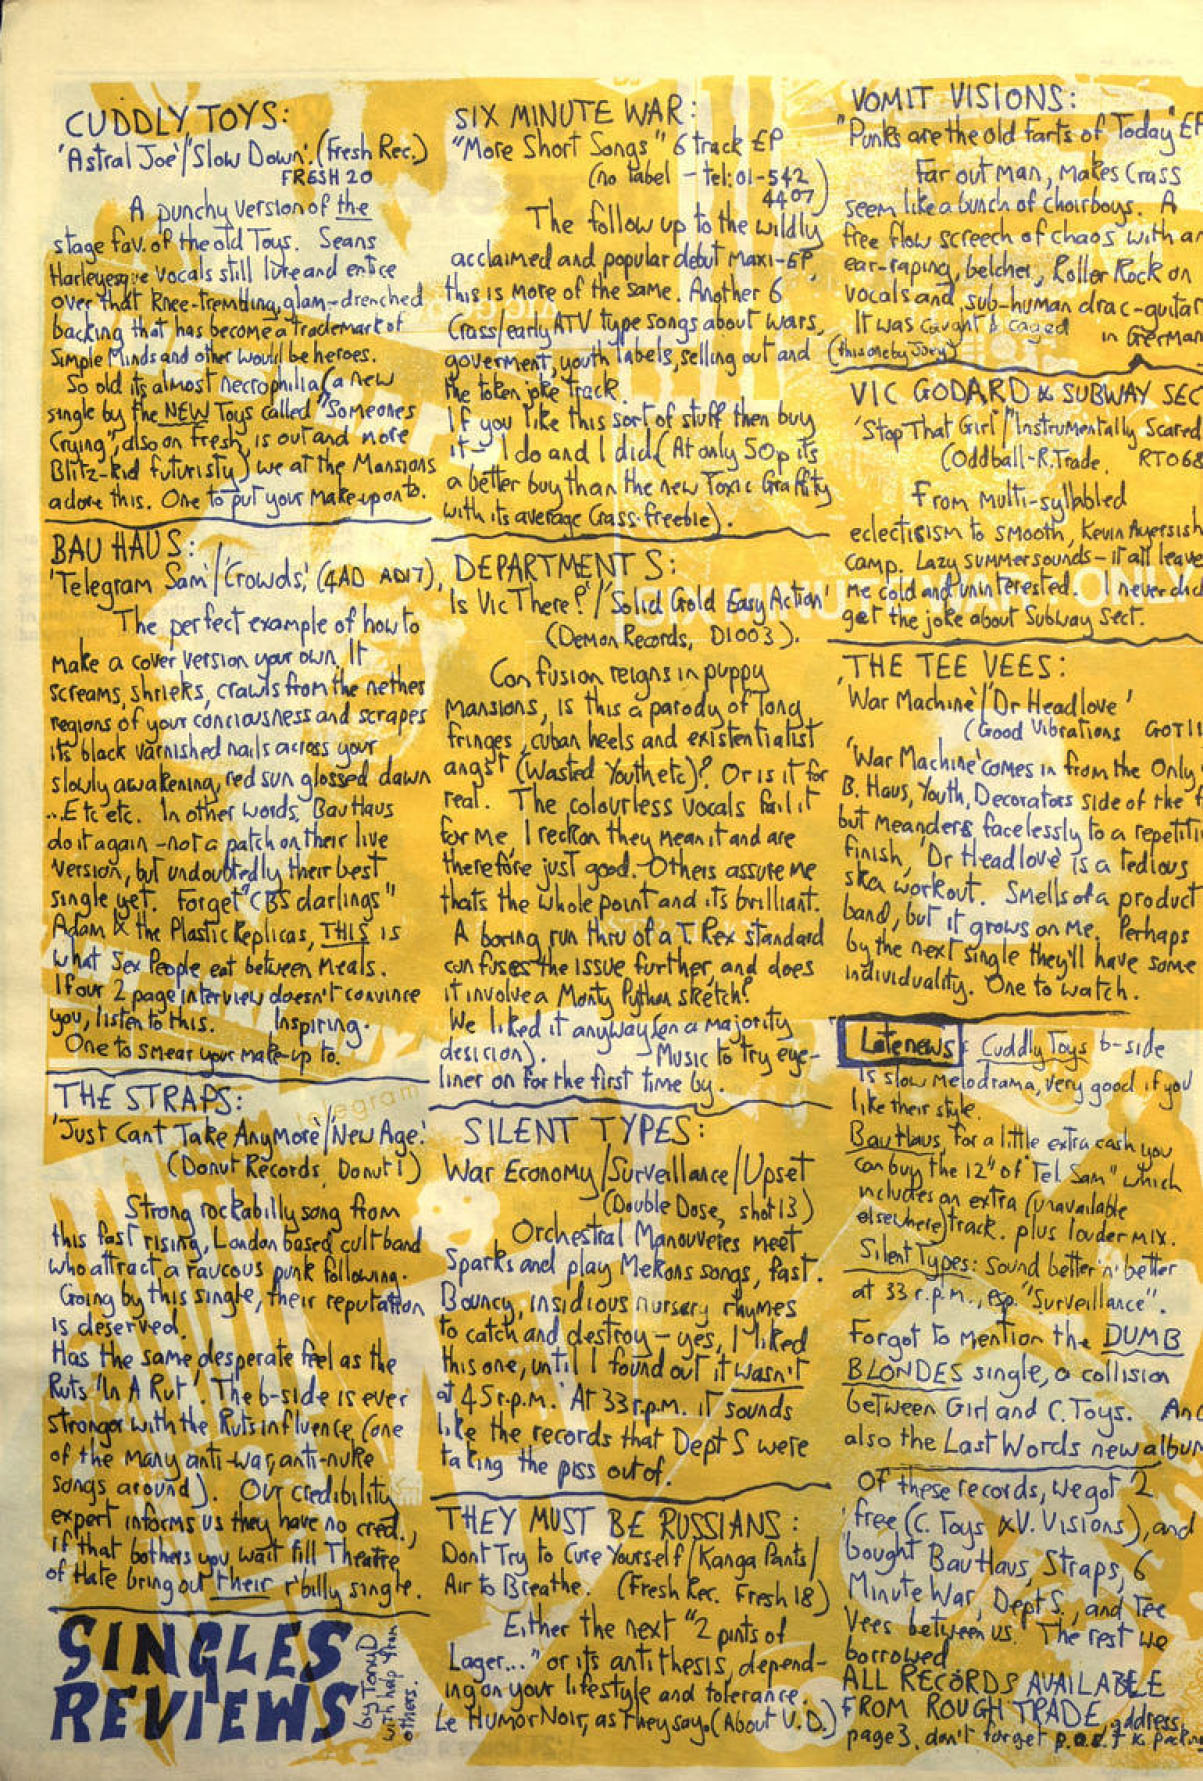 CUDDLY TOYS:
'Astral Joe'/'Slow Down'. (Fresh Rec.)
FRESH 20
A punchy version of the
stage fav. of the old Toys. Seans
Harleyesque vocals still lure and entice
over that knee-trembling, glam-drenched
backing that has become a trademark of
Simple Minds and other would be heroes.
So old its almost necrophilia (a new
single by the NEW Toys called "Someones
Crying", also on Fresh, is out and more
Blitz-kid futuristy) we at the Mansions
adore this. One to put your make-up on to.
BAU HAUS:
'Telegram Sam'/'Crowds', (4AD AD17),
The perfect example of how to
make a cover version your own. It
screams, shrieks, crawls from the nether
regions of your conciousness and scrapes
its black varnished nails across your
slowly awakening, red sun glossed dawn
...Etc etc. In other words, Bau Haus
do it again - not a patch on their live
version, but undoubtedly their best
single yet. Forget "CBS darlings"
Adam & the Plastic Replicas, THIS is
what Sex People eat between meals.
If our 2 page interview doesn't convince
you, listen to this. Inspiring.
One to smear your make-up to.
THE STRAPS:
'Just Cant Take Anymore'/'New Age'.
(Donut Records, Donut 1)
Strong rockabilly song from
this fast rising, London based cult band
who attract a raucous punk following.
Going by this single, their reputation
is deserved.
Has the same desperate feel as the
Ruts 'In A Rut'. The b-side is ever
stronger with the Ruts influence (one
of the many anti-war, anti-nuke
songs around). Our credibility
expert informs us they have no cred.,
if that bothers you wait till Theatre
of Hate bring out their r'billy single.
SINGLES
REVIEWS
by Tony D
with help from
others.
SIX MINUTE WAR:
"More Short Songs" 6 track EP
(no label - tel: 01-542
4407)
The follow up to the wildly
acclaimed and popular debut Maxi-EP,
this is more of the same. Another 6
Crass/early ATV type songs about wars,
goverment, youth labels, selling out and
the token joke track.
If you like this sort of stuff then buy
it - I do and I did (At only 50p its
a better buy than the new Toxic Graffity
with its average Crass freebie).
DEPARTMENT S:
'Is Vic There?'/'Solid Gold Easy Action'
(Demon Records, D1003).
Confusion reigns in puppy
mansions, is this a parody of long
fringes, cuban heels and existentialist
angst (Wasted Youth etc)? Or is it for
real. The colourless vocals fail it
for me, I reckon they mean it and are
therefore just good. Others assure me
thats the whole point and its brilliant.
A boring run thru of a T. Rex standard
confuses the issue further, and does
it involve a Monty Python sketch?
We liked it anyway (on a majority
desicion). Music to try eye-
liner on for the first time by.
SILENT TYPES:
War Economy/Surveillance/Upset
(Double Dose, shot 13)
Orchestral Manouveres meet
Sparks and play Mekons songs, fast.
Bouncy, insidious nursery rhymes
to catch and destroy - yes, I liked
this one, until I found out it wasn't
at 45 r.p.m. At 33 r.p.m. it sounds
like the records that Dept S were
taking the piss out of.
THEY MUST BE RUSSIANS:
Dont Try to Cure Yourself/Kanga Pants/
Air to Breathe. (Fresh Rec. Fresh 18)
Either the next "2 pints of
Lager..." or its antithesis, depend-
ing on your lifestyle and tolerance.
Le Humor Noir, as they say. (About V.D.)
VOMIT VISIONS:
"Punks are the old Farts of Today" EP
Far out Man, makes Crass
seem like a bunch of choirboys. A
free flow screech of chaos with an
ear-raping, belcher, Roller Rock on
vocals and sub-human drac-guitar
It was caught & caged in German
(this one by Joey)
VIC GODARD & SUBWAY SEC
'Stop That Girl'/'Instrumentally Scared
(Oddball-R.Trade, RT068
From multi-syllabled
eclecticism to smooth, Kevin Ayersish
camp. Lazy summer sounds - it all leave
me cold and uninterested. I never did
get the joke about Subway Sect.
THE TEE VEES:
'War Machine'/'Dr Headlove'
(Good Vibrations GOT11
'War Machine' comes in from the Only
B. Haus, Youth, Decorators side of the
but meanders facelessly to a repetiti
finish, 'Dr Headlove' is a tedious
ska workout. Smells of a product
band, but it grows on me. Perhaps
by the next single they'll have some
individuality. One to watch.
Late news: Cuddly Toys b-side
is slow melodrama, very good if you
like their style.
Bau Haus, for a little extra cash you
can buy the 12" of "Tel. Sam" which
includes an extra (unavailable
elsewhere) track. plus louder mix.
Silent Types: sound better 'n' better
at 33 r.p.m., esp. "Surveillance".
Forgot to mention the DUMB
BLONDES single, a collision
between Girl and C. Toys. And
also the Last Words new album
Of these records, we got 2
free (C. Toys & V. Visions), and
bought Bau Haus, Straps, 6
Minute War, Dept S., and Tee
Vees between us. The rest we
borrowed
ALL RECORDS AVAILABLE
FROM ROUGH TRADE, address
page 3, don't forget p.o.s.t & packing